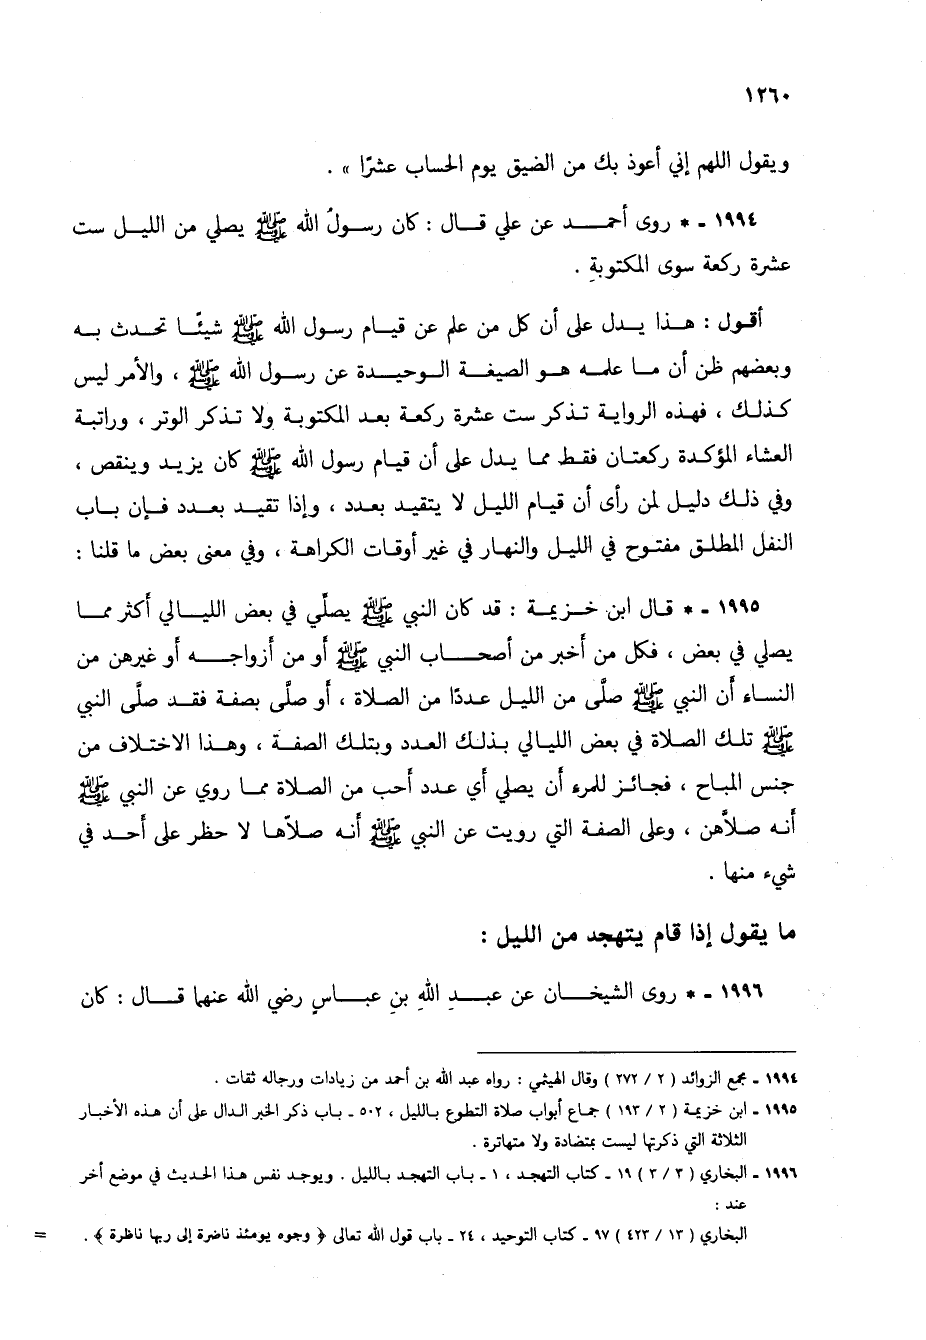 ١٢٦٠
ويقول اللهم إني أعوذ بك من الضيق يوم الحساب عشرًا » .
١٩٩٤ ـ * روى أحمد عن علي قال : كان رسولُ الله ﷺ يصلي من الليل ست
عشرة ركعة سوى المكتوبةِ .
أقول : هذا يدل على أن كل من علم عن قيام رسول الله ﷺ شيئًا تحدث به
وبعضهم ظن أن ما علمه هو الصيغة الوحيدة عن رسول الله ﷺ ، والأمر ليس
كذلك ، فهذه الرواية تذكر ست عشرة ركعة بعد المكتوبة ولا تذكر الوتر ، وراتبة
العشاء المؤكدة ركعتان فقط مما يدل على أن قيام رسول الله ﷺ كان يزيد وينقص ،
وفي ذلك دليل لمن رأى أن قيام الليل لا يتقيد بعدد ، وإذا تقيد بعدد فإن باب
النفل المطلق مفتوح في الليل والنهار في غير أوقات الكراهة ، وفي معنى بعض ما قلنا :
١٩٩٥ ـ * قال ابن خزيمة : قد كان النبي ﷺ يصلّي في بعض الليالي أكثر مما
يصلي في بعض ، فكل من أخبر من أصحاب النبي ﷺ أو من أزواجه أو غيرهن من
النساء أن النبي ﷺ صلَّى من الليل عددًا من الصلاة ، أو صلَّى بصفة فقد صلَّى النبي
ﷺ تلك الصلاة في بعض الليالي بذلك العدد وبتلك الصفة ، وهذا الاختلاف من
جنس المباح ، فجائز للمرء أن يصلي أي عدد أحب من الصلاة مما روي عن النبي ﷺ
أنه صلاَّهن ، وعلى الصفة التي رويت عن النبي ﷺ أنه صلاّها لا حظر على أحد في
شيء منها .
ما يقول إذا قام يتهجد من الليل :
١٩٩٦ ـ * روى الشيخان عن عبدِ اللهِ بنِ عباسٍ رضي الله عنهما قال : كان
١٩٩٤ ـ مجمع الزوائد ( ٢ / ٢٧٢ ) وقال الهيثمي : رواه عبد الله بن أحمد من زيادات ورجاله ثقات .
١٩٩٥ ـ ابن خزيمة ( ٢ / ١٩٣ ) جماع أبواب صلاة التطوع بالليل ، ٥٠٢ ـ باب ذكر الخبر الدال على أن هذه الأخبار
الثلاثة التي ذكرتها ليست بمتضادة ولا متهاترة .
١٩٩٦ ـ البخاري ( ٣ / ٣ ) ١٩ ـ كتاب التهجد ، ١ ـ باب التهجد بالليل . ويوجد نفس هذا الحديث في موضع أخر
عند :
البخاري ( ١٣ / ٤٢٣ ) ٩٧ ـ كتاب التوحيد ، ٢٤ ـ باب قول الله تعالى ﴿ وجوه يومئذ ناضرة إلى ربها ناظرة ﴾ . =